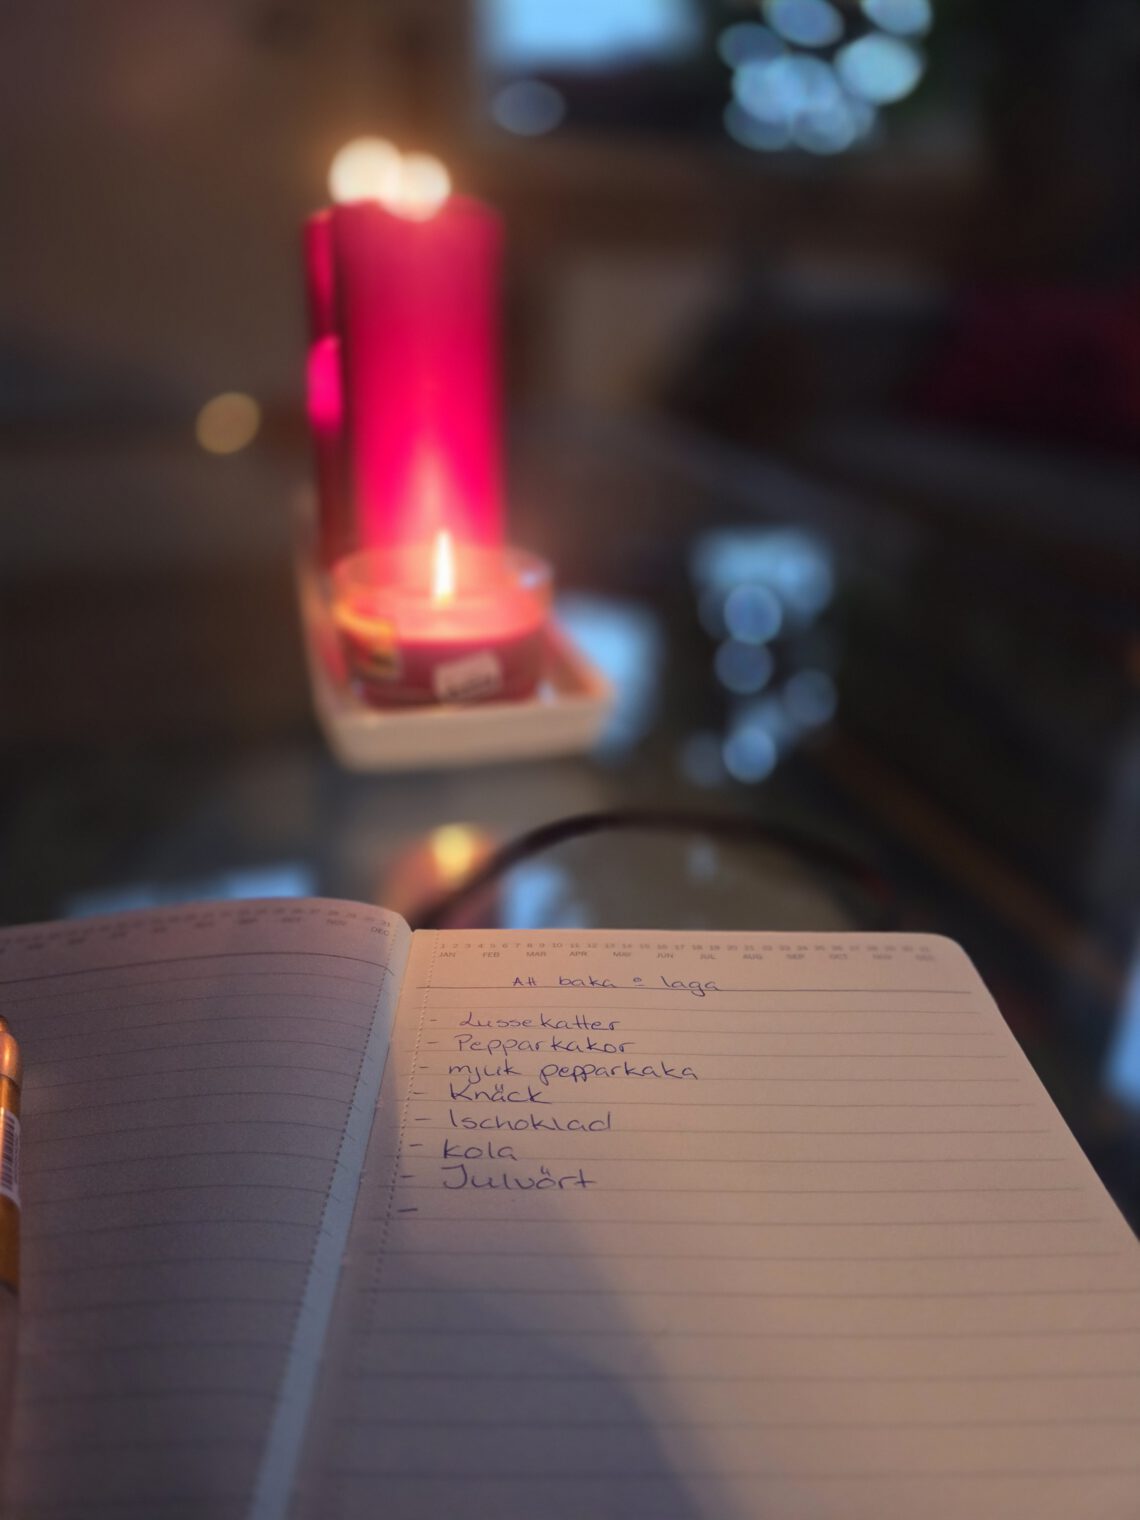 1 2 3 4 5 6 7 8 9 10 11 12 13 14 15 16 17 18 19 20 21 22 23 24 25 26 27 28 29 30 31
JAN FEB MAR APR MAY JUN JUL AUG SEP OCT NOV DEC
Att baka o laga
- Lussekatter
- Pepparkakor
- mjuk pepparkaka
- Knäck
- Ischoklad
- kola
- Julvört
-